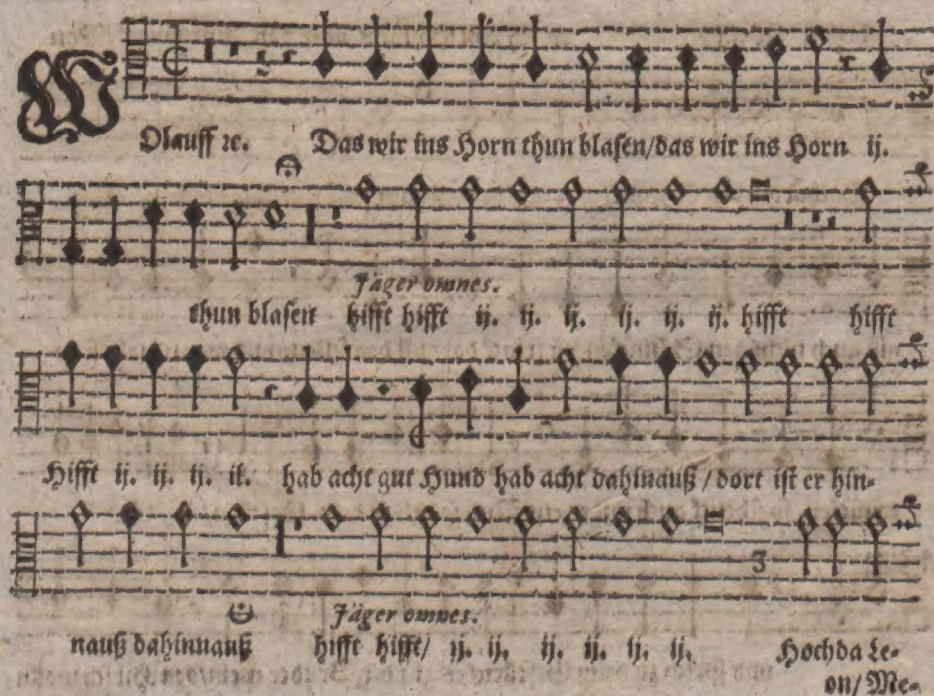 WOlauff ꝛc. Das wir ins Horn thun blasen/das wir ins Horn ij.
Jäger omnes.
thun blasen hifft hifft ij. ij. ij. ij. ij. ij. hifft hifft
Hifft ij. ij. ij. ij. hab acht gut Hund hab acht dahinauß / dort ist er hin-
3
Jäger omnes.
nauß dahinnauß hifft hifft/ ij. ij. ij. ij. ij. ij. Hochda Le-
on/ Me-